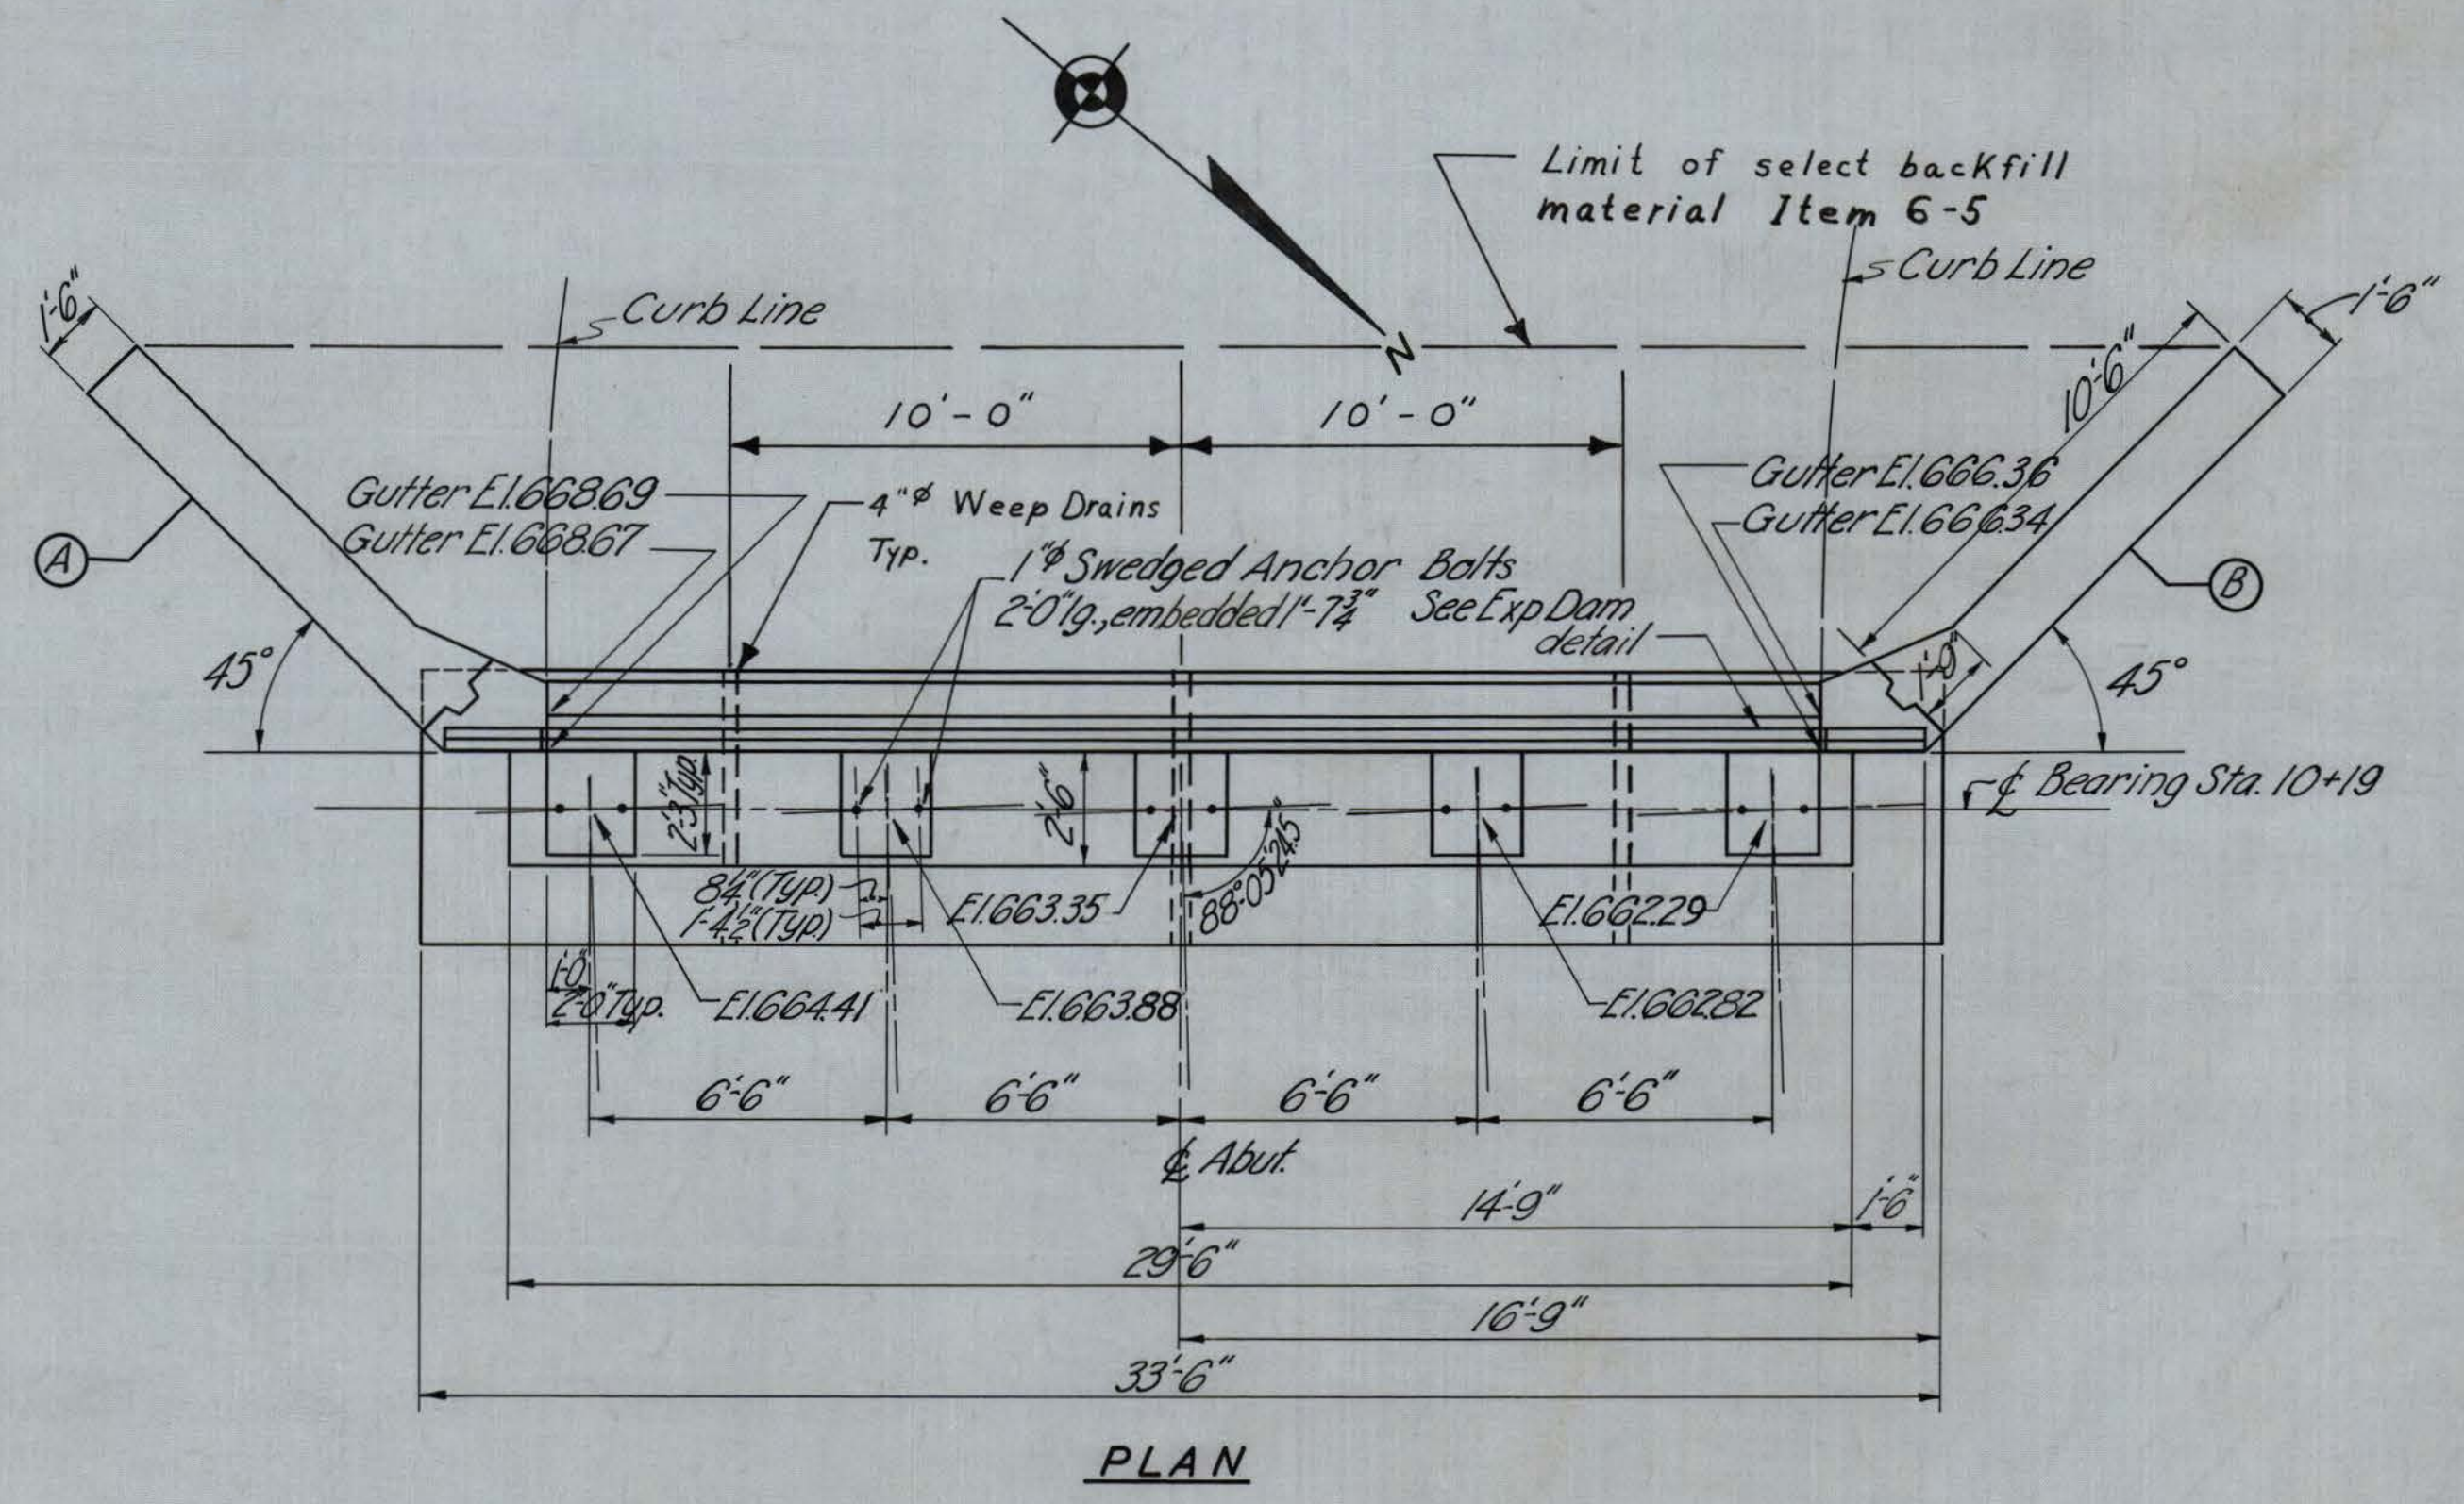 Limit of select backfill
material Item 6-5
Curb Line
Curb Line
1'-6"
1'-6"
N
10'-6"
10'-0"
10'-0"
Gutter El.668.69
Gutter El.668.67
4"ø Weep Drains
Typ.
Gutter El.666.36
Gutter El.666.34
1"ø Swedged Anchor Bolts
2'-0"lg., embedded 1'-7¾"
See Exp Dam
detail
A
B
45°
45°
1'-9"
℄ Bearing Sta. 10+19
2'-3"Typ.
2'-6"
88°-05'24.5"
8¼"(Typ.)
1'-4½"(Typ.)
El.663.35
El.662.29
1'-0"
2'-0"Typ.
El.664.41
El.663.88
El.662.82
6'-6"
6'-6"
6'-6"
6'-6"
℄ Abut.
14'-9"
1'-6"
29'-6"
16'-9"
33'-6"
PLAN